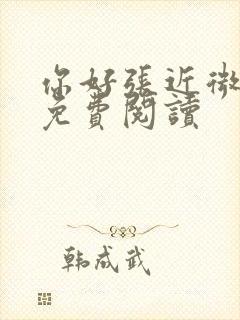 你好張近微
免費閱讀
韩成武